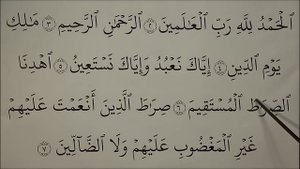 ٱلْحَمْدُ لِلَّهِ رَبِّ ٱلْعَـٰلَمِينَ ٢ ٱلرَّحْمَـٰنِ ٱلرَّحِيمِ ٣ مَـٰلِكِ
يَوْمِ ٱلدِّينِ ٤ إِيَّاكَ نَعْبُدُ وَإِيَّاكَ نَسْتَعِينُ ٥ ٱهْدِنَا
ٱلصِّرَٰطَ ٱلْمُسْتَقِيمَ ٦ صِرَٰطَ ٱلَّذِينَ أَنْعَمْتَ عَلَيْهِمْ
غَيْرِ ٱلْمَغْضُوبِ عَلَيْهِمْ وَلَا ٱلضَّآلِّينَ ٧